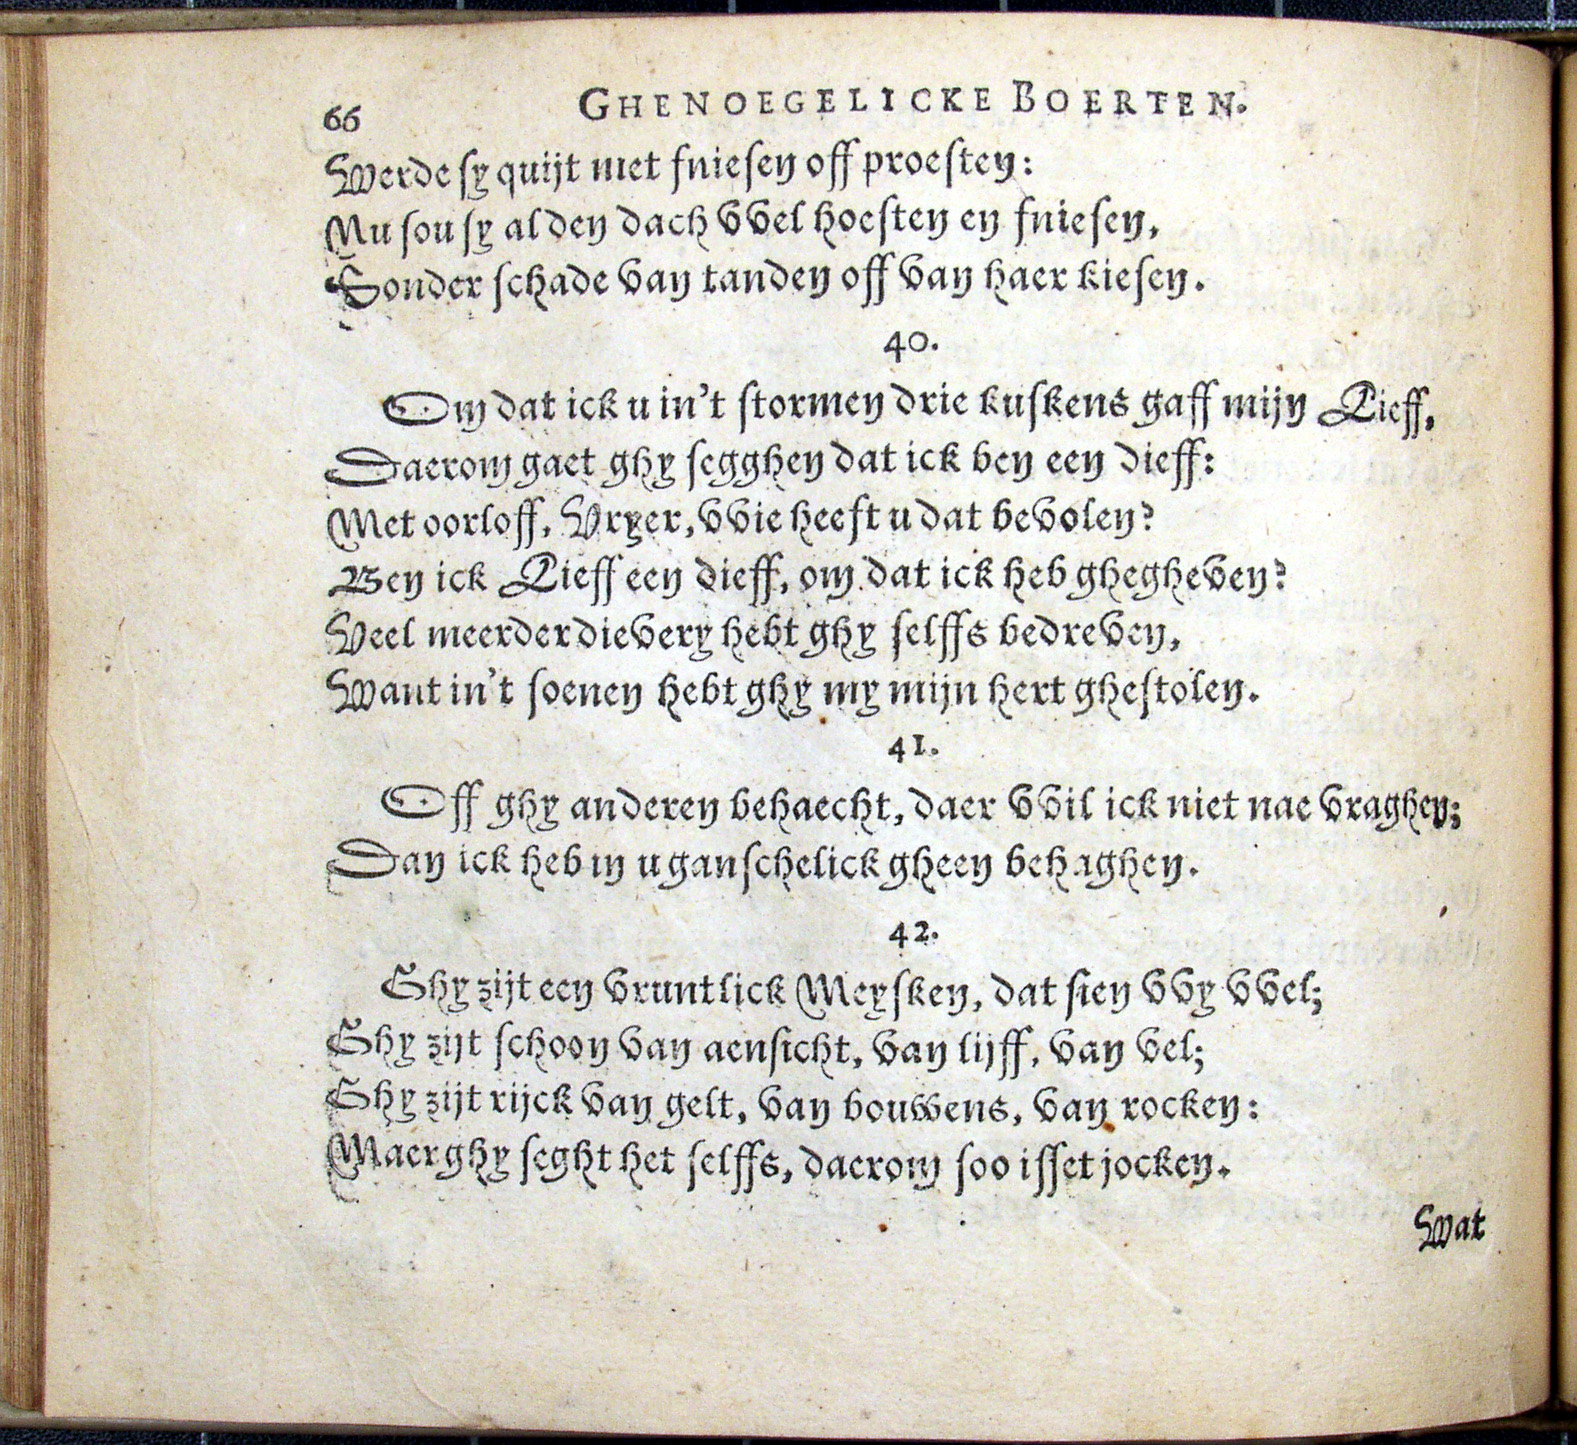 66 GHENOEGELICKE BOERTEN.
Werde sy quijt met fniesen off proesten:
Nu sou sy al den dach vvel hoesten en fniesen,
Sonder schade van tanden off van haer kiesen.
40.
Om dat ick u in't stormen drie kuskens gaff mijn Lieff,
Daerom gaet ghy segghen dat ick ben een dieff:
Met oorloff, Vryer, vvie heeft u dat bevolen?
Ben ick Lieff een dieff, om dat ick heb ghegheven?
Veel meerder dievery hebt ghy selffs bedreven,
Want in't soenen hebt ghy my mijn hert ghestolen.
41.
Off ghy anderen behaecht, daer vvil ick niet nae vraghen;
Dan ick heb in u ganschelick gheen behaghen.
42.
Ghy zijt een vruntlick Meysken, dat sien vvy vvel;
Ghy zijt schoon van aensicht, van lijff, van vel;
Ghy zijt rijck van gelt, van bouwens, van rocken:
Maer ghy seght het selffs, daerom soo isset jocken.
Wat